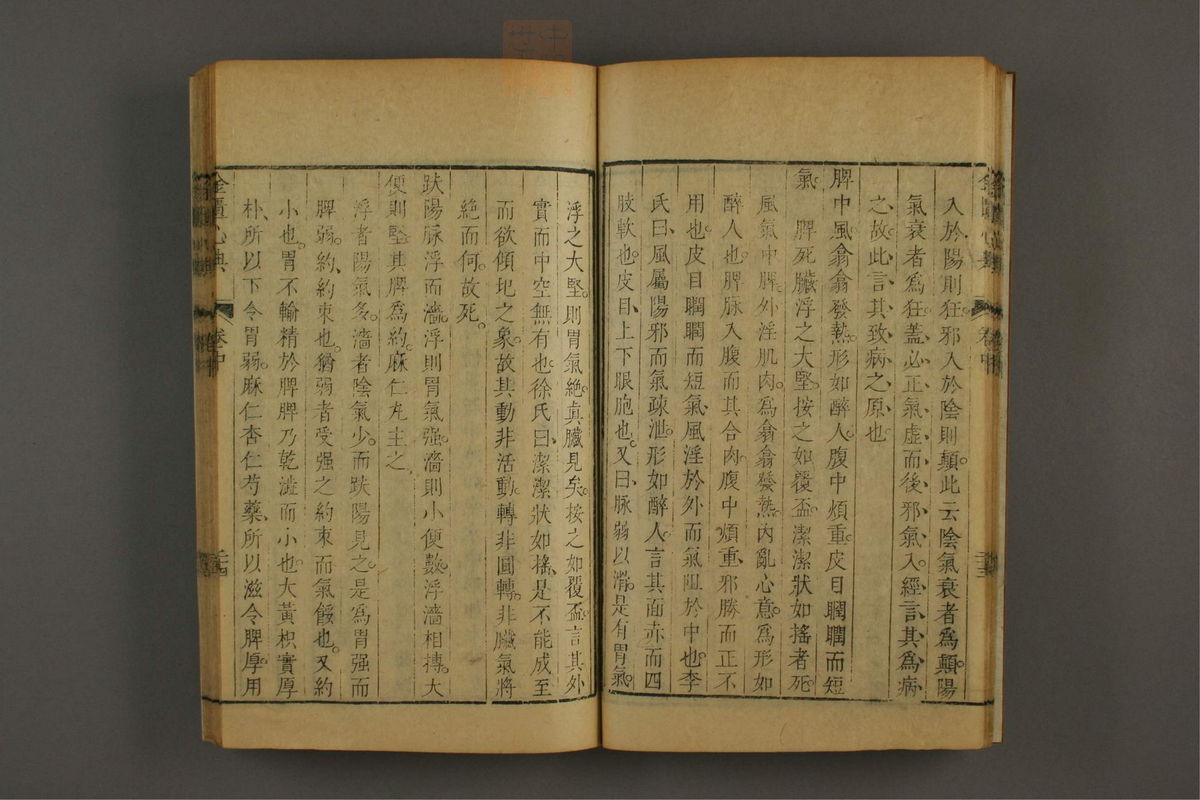 入於陽則狂邪入於陰則顛此云陰氣衰者爲顛陽
氣衰者爲狂蓋必正氣虛而後邪氣入經言其爲病
之故此言其致病之原也
脾中風翕翕發熱形如醉人腹中煩重皮目瞤瞤而短
氣脾死臟浮之大堅按之如覆盃潔潔狀如搖者死
風氣中脾外淫肌肉爲翕翕發熱內亂心意爲形如
醉人也脾脉入腹而其合肉腹中煩重邪勝而正不
用也皮目瞤瞤而短氣風淫於外而氣阻於中也李
氏曰風屬陽邪而氣疎泄形如醉人言其面赤而四
肢軟也皮目上下眼胞也又曰脉弱以滑是有胃氣
浮之大堅則胃氣絶真臟見矣按之如覆盃言其外
實而中空無有也徐氏曰潔潔狀如搖是不能成至
而欲傾圮之象故其動非活動轉非圓轉非臟氣將
絶而何故死
趺陽脉浮而濇浮則胃氣强濇則小便數浮濇相摶大
便則堅其脾爲約麻仁丸主之
浮者陽氣多濇者陰氣少而趺陽見之是爲胃强而
脾弱約約束也猶弱者受强之約束而氣餒也又約
小也胃不輸精於脾脾乃乾澁而小也大黃枳實厚
朴所以下令胃弱麻仁杏仁芍藥所以滋令脾厚用
金匱心典
卷中